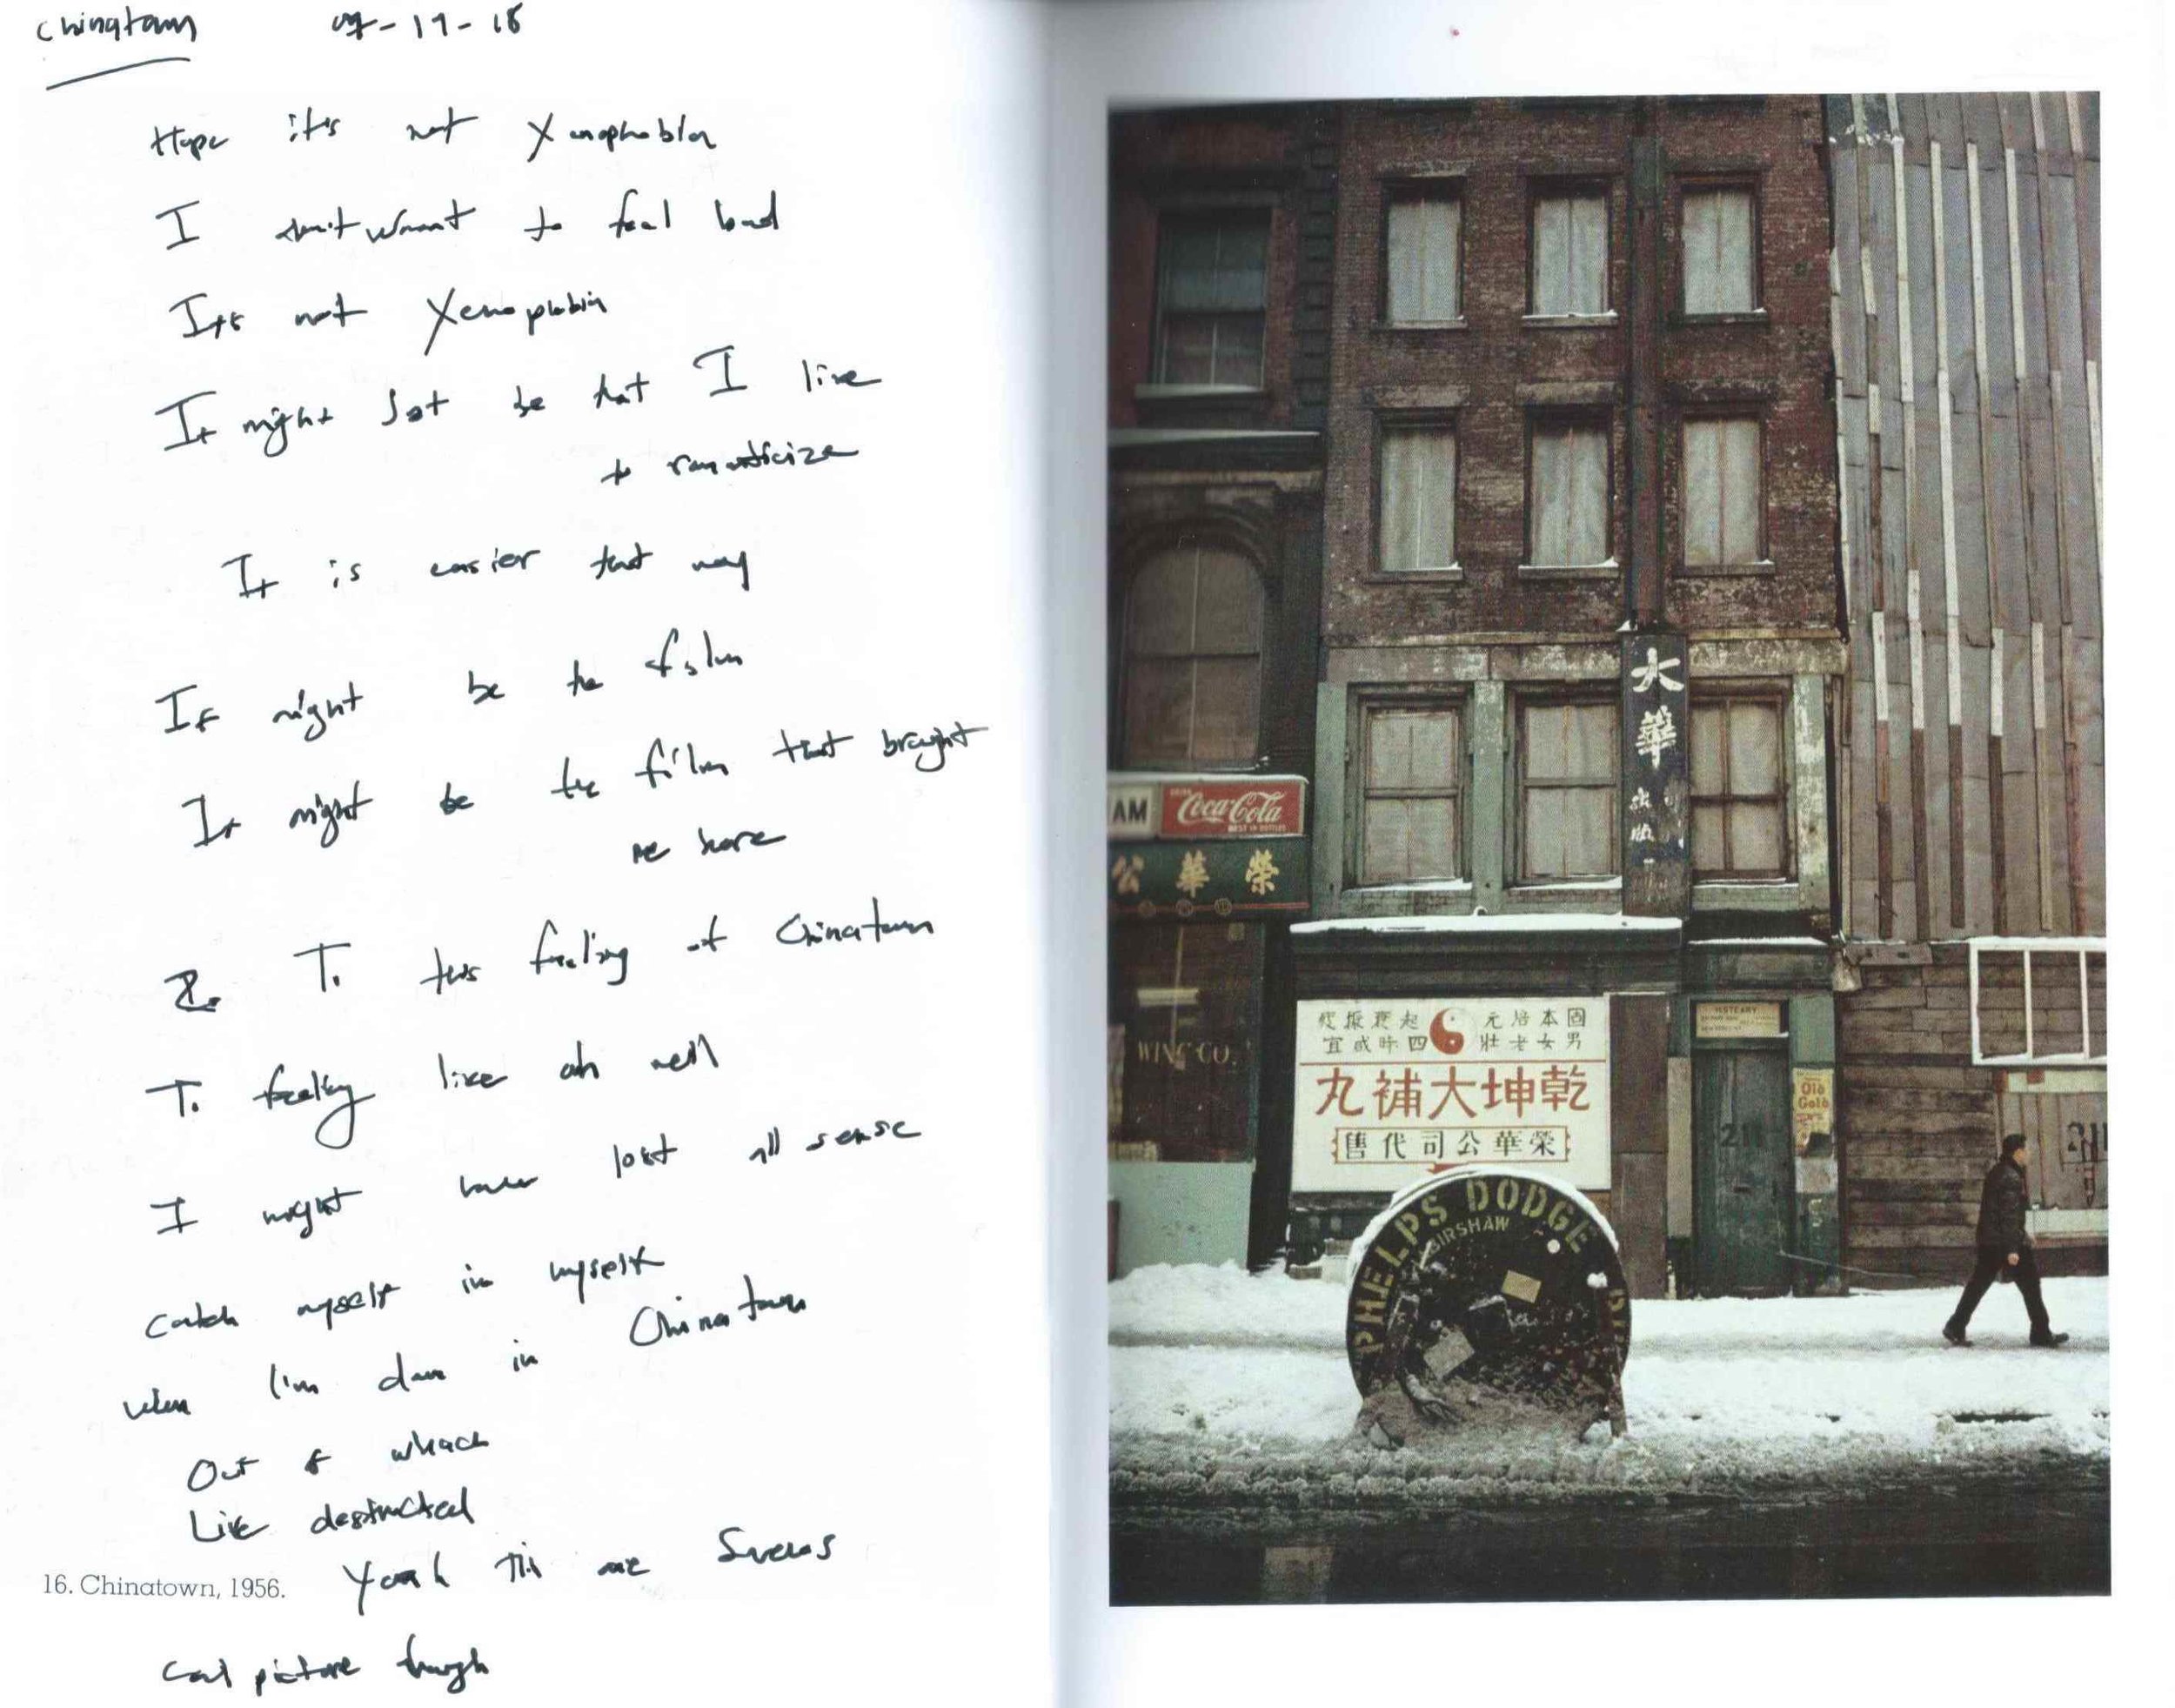 Chinatown 07-17-18
Hope it's not Xenophobia
I don't want to feel bad
It's not Xenophobia
It might just be that I like
to romanticize
It is easier that way
It might be the film
It might be the film that brought
me here
To this feeling of Chinatown
To feeling like ah well
I might have lost all sense
Catch myself in myself
when I'm down in Chinatown
Out of whack
Like destructed
Yeah this one
16. Chinatown, 1956.
Cool picture though
大華
AM
DRINK
Coca-Cola
BEST IN BOTTLES
公華榮
WING CO.
起衰振 元培本固
宜咸時四 壯老女男
丸補大坤乾
售代司公華榮
PHELPS DODGE
HABIRSHAW
211
Old
Gold
211